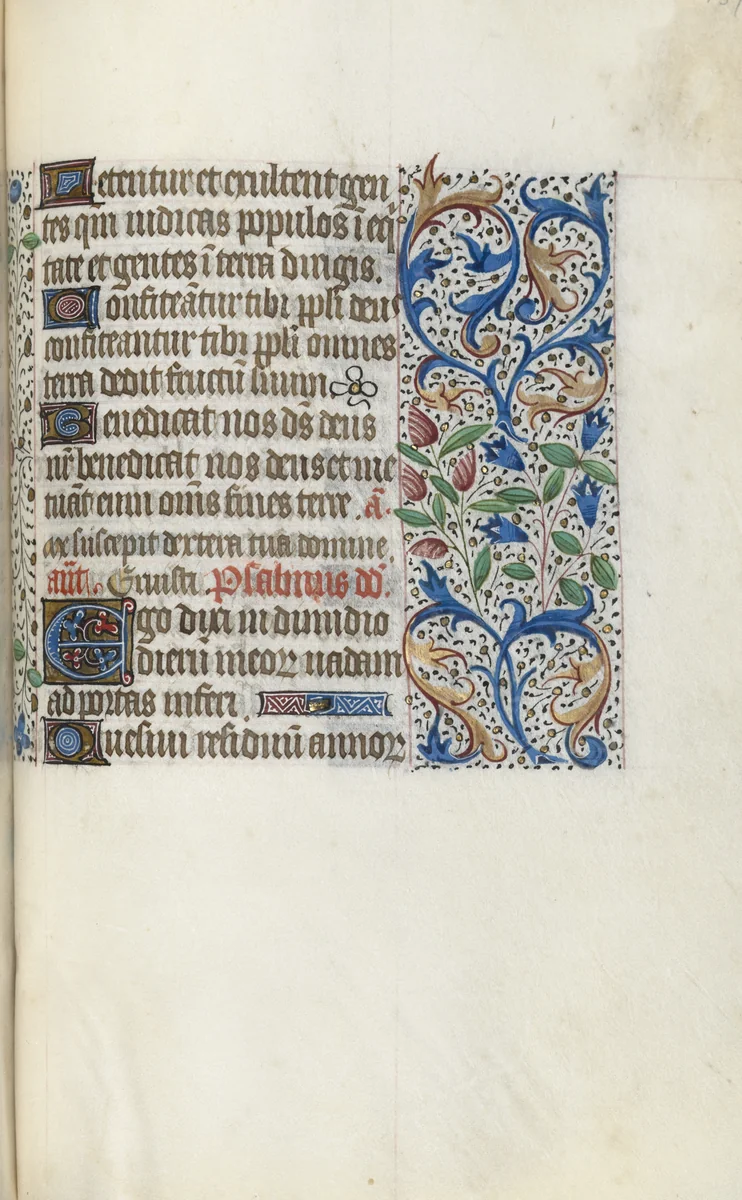 Letentur et exultent gen
tes qui iudicas populos ī eq̄
tate et gentes ī terra dirigis.
Confiteātur tibi ppl̄i deus
confiteantur tibi ppl̄i omnes
terra dedit fructū suum
Benedicat nos dn̄s deus
nr̄ benedicat nos deus et me
tuāt eum om̄s fines terre. ā.
ax suscepit dextera tua domine.
añt. Psalmus dd̄.
Ego dixi in dimidio
dierū meoꝝ uadam
ad portas inferi.
Quesiui residuū annoꝝ